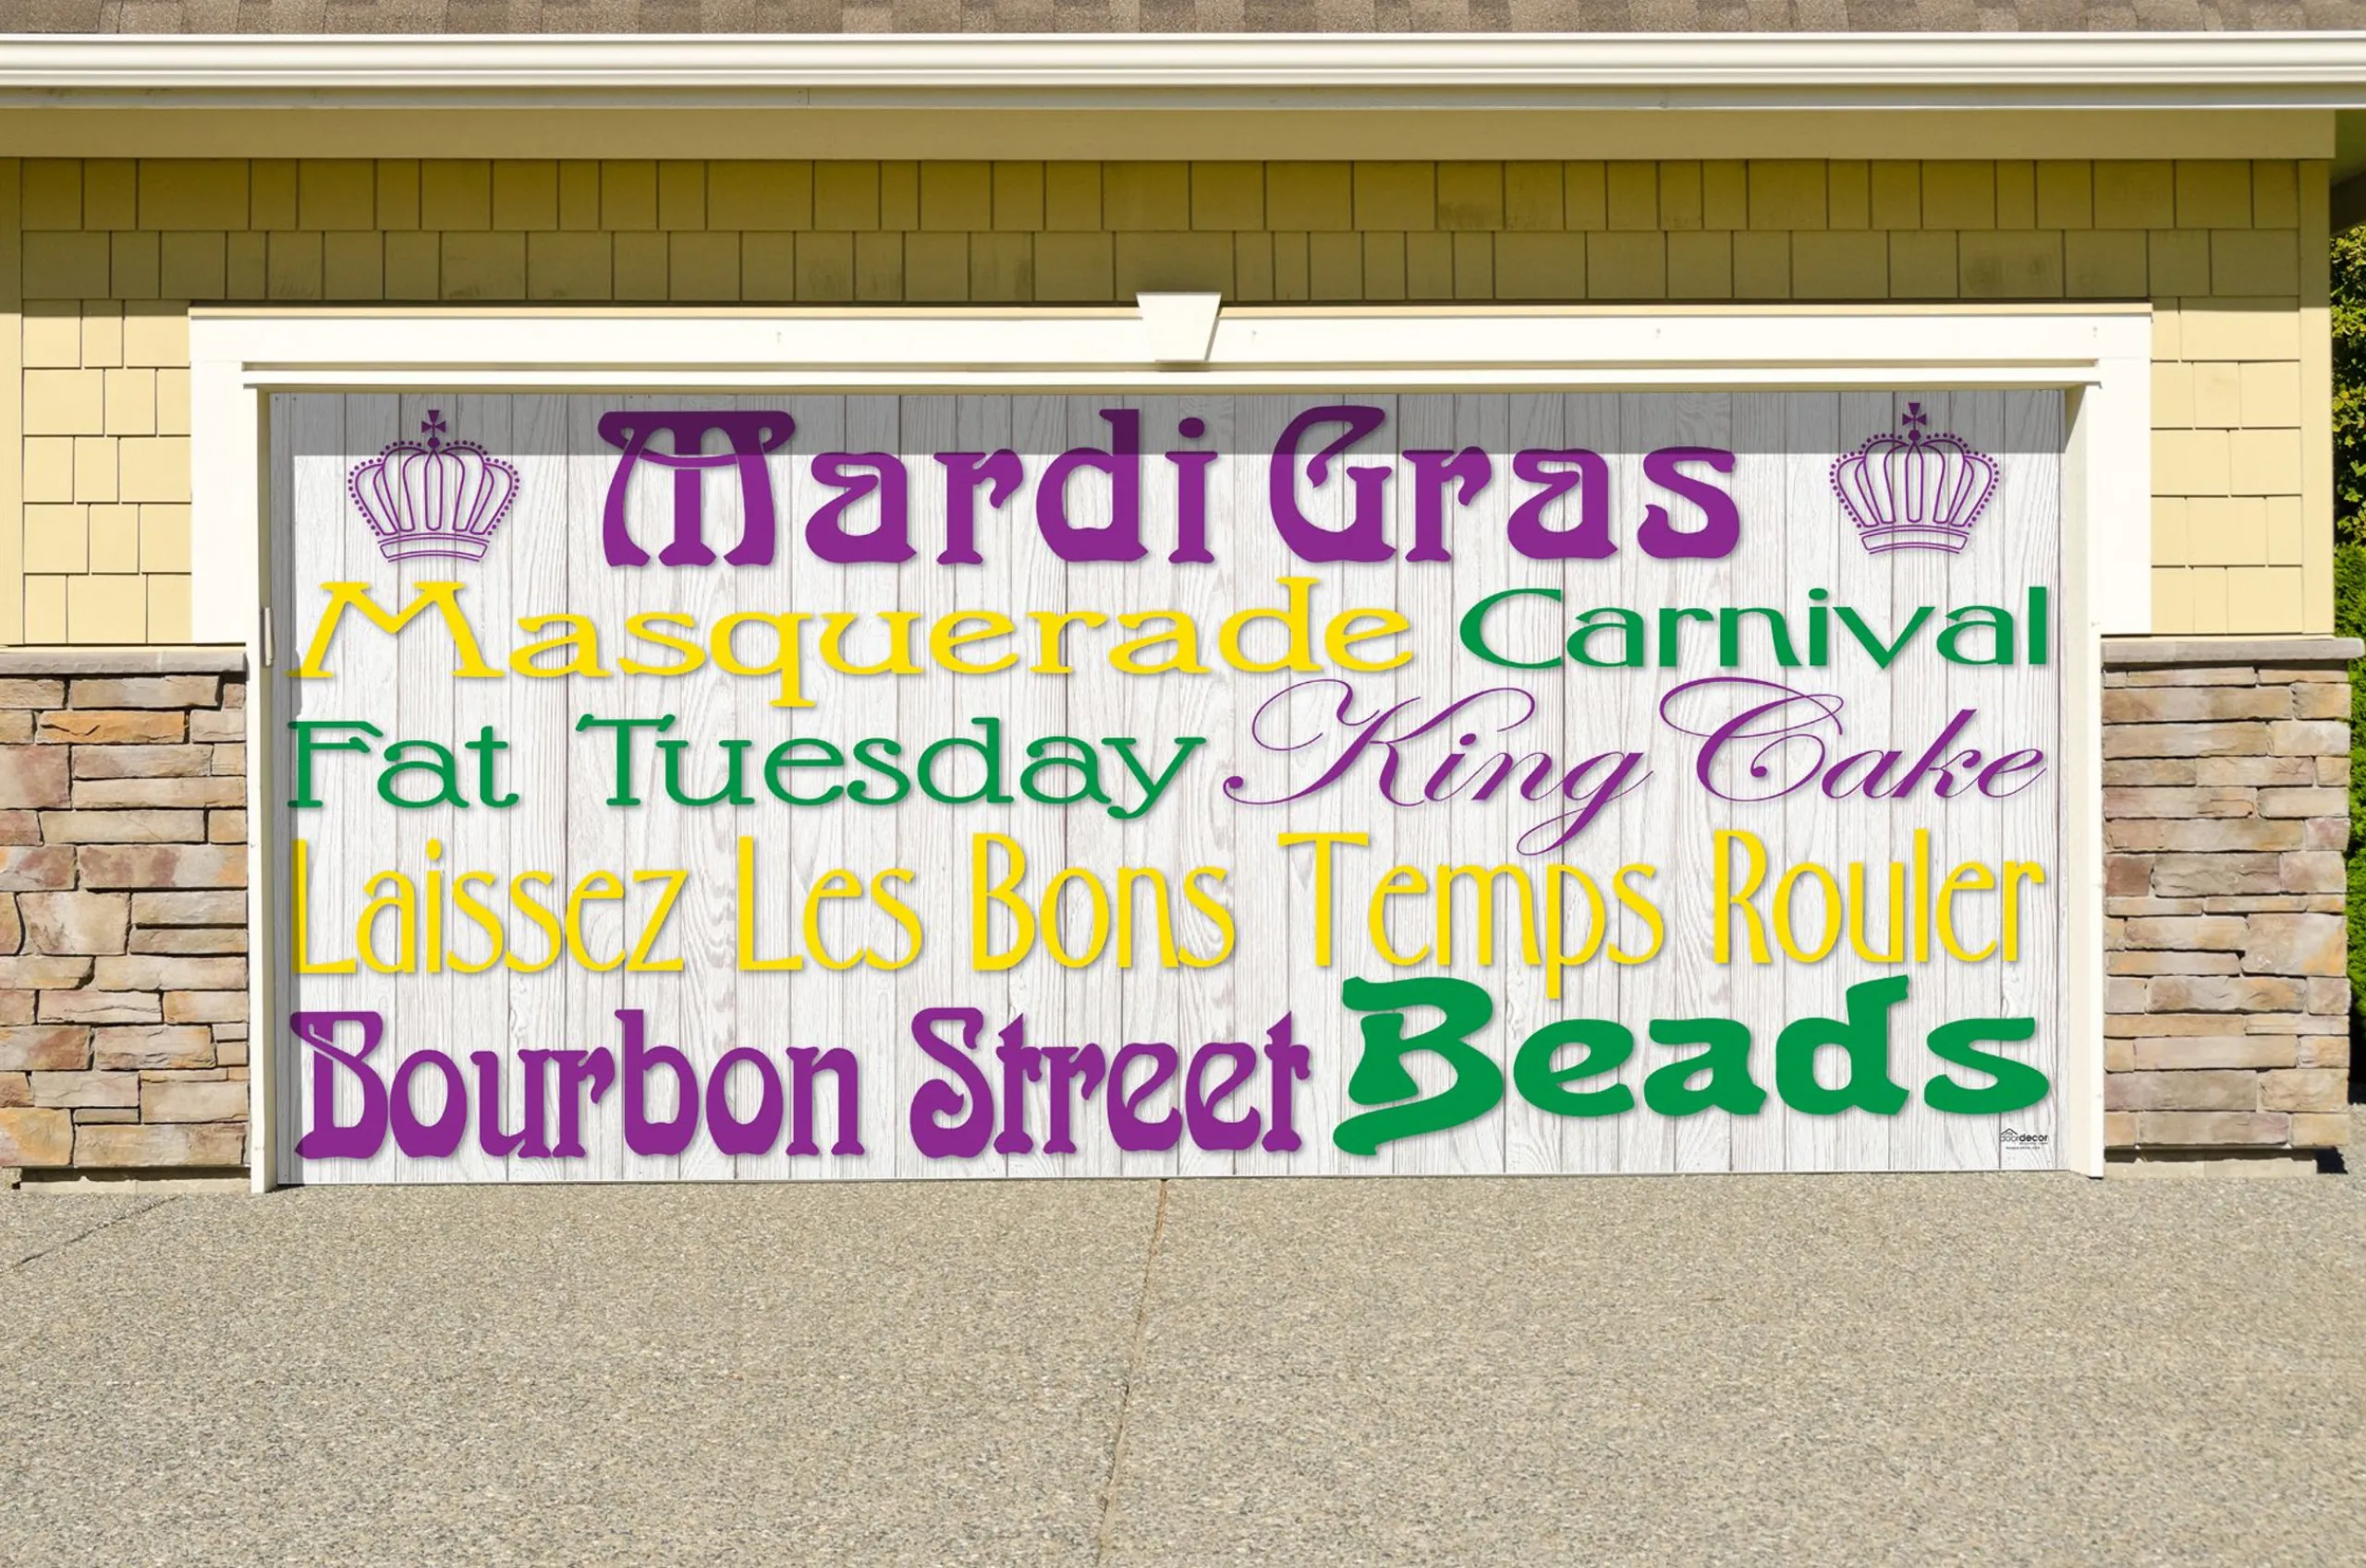 Mardi Gras
Masquerade Carnival
Fat Tuesday King Cake
Laissez Les Bons Temps Rouler
Bourbon Street Beads
doordecor